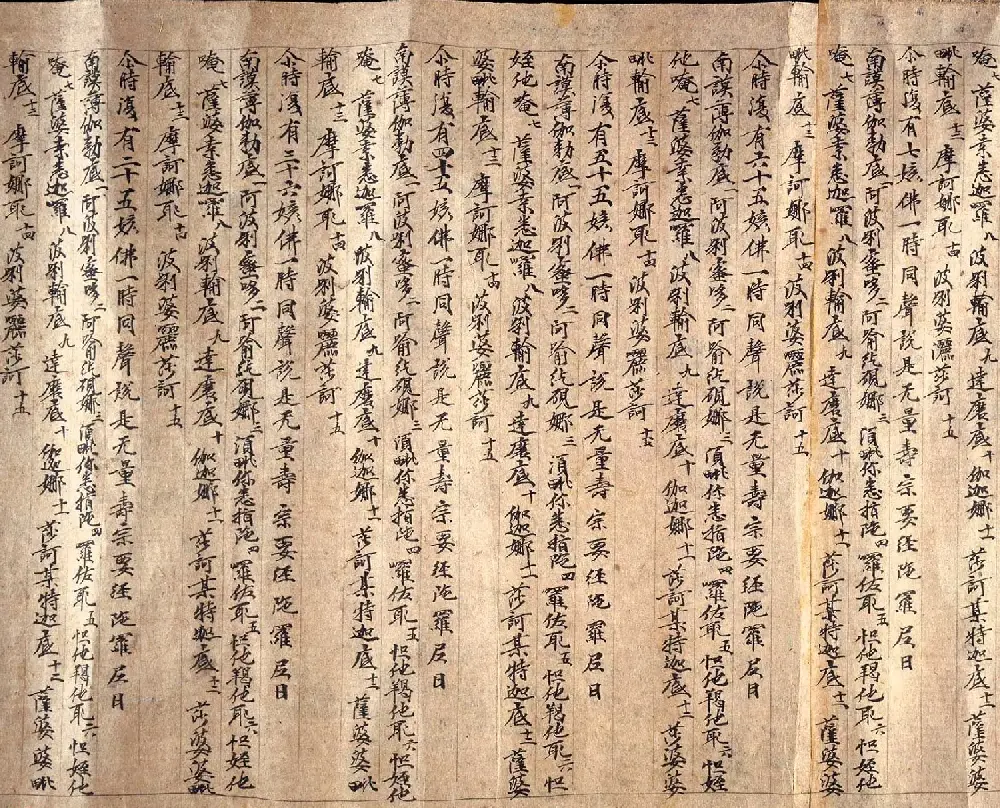 唵七 薩婆桒悉迦羅八 波唎輸底九 達磨底十 伽迦娜十一 莎訶某特迦底十二 薩婆婆
毗輸底十三 摩訶娜耶十四 波唎婆囇莎訶十五
尒時復有七姟佛一時同聲說是无量壽宗要經陁羅尼曰
南謨薄伽勃底一 阿波唎蜜哆二 阿喻纥硯娜三 須毗你悉指陁四 囉佐耶五 怛他羯他耶六 怛姪他
唵七 薩婆桒悉迦羅八 波唎輸底九 達磨底十 伽迦娜十一 莎訶某特迦底十二 薩婆婆
毗輸底十三 摩訶娜耶十四 波唎婆囇莎訶十五
尒時復有六十五姟佛一時同聲說是无量壽宗要經陁羅尼曰
南謨薄伽勃底一 阿波唎蜜哆二 阿喻纥硯娜三 須毗你悉指陁四 囉佐耶五 怛他羯他耶六 怛姪
他唵七 薩婆桒悉迦羅八 波唎輸底九 達磨底十 伽迦娜十一 莎訶某特迦底十二 薩婆婆
毗輸底十三 摩訶娜耶十四 波唎婆囇莎訶十五
尒時復有五十五姟佛一時同聲說是无量壽宗要經陁羅尼曰
南謨薄伽勃底一 阿波唎蜜哆二 阿喻纥硯娜三 須毗你悉指陁四 囉佐耶五 怛他羯他耶六 怛
姪他唵七 薩婆桒悉迦囉八 波唎輸底九 達磨底十 伽迦娜十一 莎訶某特迦底十二 薩婆
婆毗輸底十三 摩訶娜耶十四 波唎婆囇莎訶十五
尒時復有四十五姟佛一時同聲說是无量壽宗要經陁羅尼曰
南謨薄伽勃底一 阿波唎蜜哆二 阿喻纥硯娜三 須毗你悉指陁四 囉佐耶五 怛他羯他耶六 怛姪他
唵七 薩婆桒悉迦羅八 波唎輸底九 達磨底十 伽迦娜十一 莎訶某特迦底十二 薩婆婆毗
輸底十三 摩訶娜耶十四 波唎婆囇莎訶十五
尒時復有三十六姟佛一時同聲說是无量壽宗要經陁羅尼曰
南謨薄伽勃底一 阿波唎蜜哆二 阿喻纥硯娜三 須毗你悉指陁四 囉佐耶五 怛他羯他耶六 怛姪他
唵七 薩婆桒悉迦羅八 波唎輸底九 達磨底十 伽迦娜十一 莎訶某特迦底十二 薩婆婆毗
輸底十三 摩訶娜耶十四 波唎婆囇莎訶十五
尒時復有二十五姟佛一時同聲說是无量壽宗要經陁羅尼曰
南謨薄伽勃底一 阿波唎蜜哆二 阿喻纥硯娜三 須毗你悉指陁四 囉佐耶五 怛他羯他耶六 怛姪他
唵七 薩婆桒悉迦羅八 波唎輸底九 達磨底十 伽迦娜十一 莎訶某特迦底十二 薩婆婆毗
輸底十三 摩訶娜耶十四 波唎婆囇莎訶十五